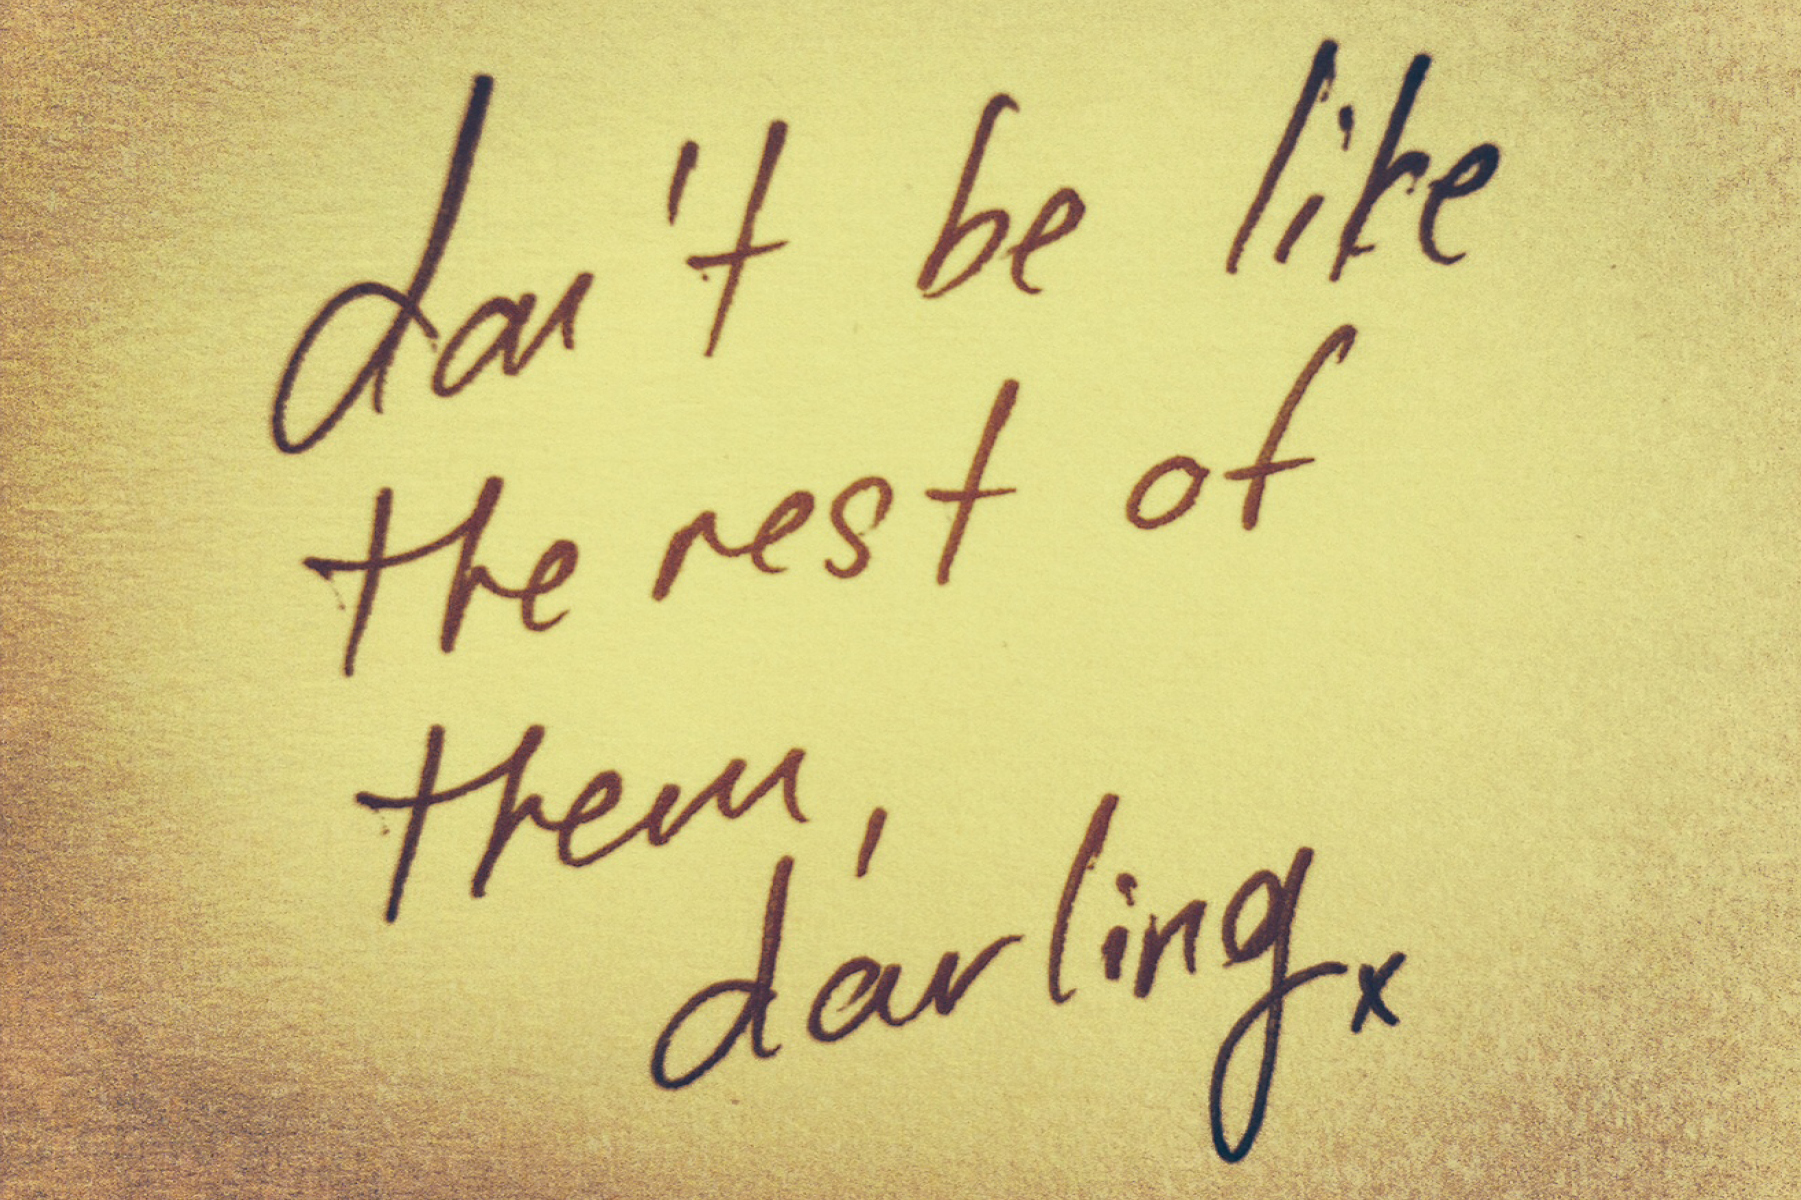 don't be like
the rest of
them,
darling x